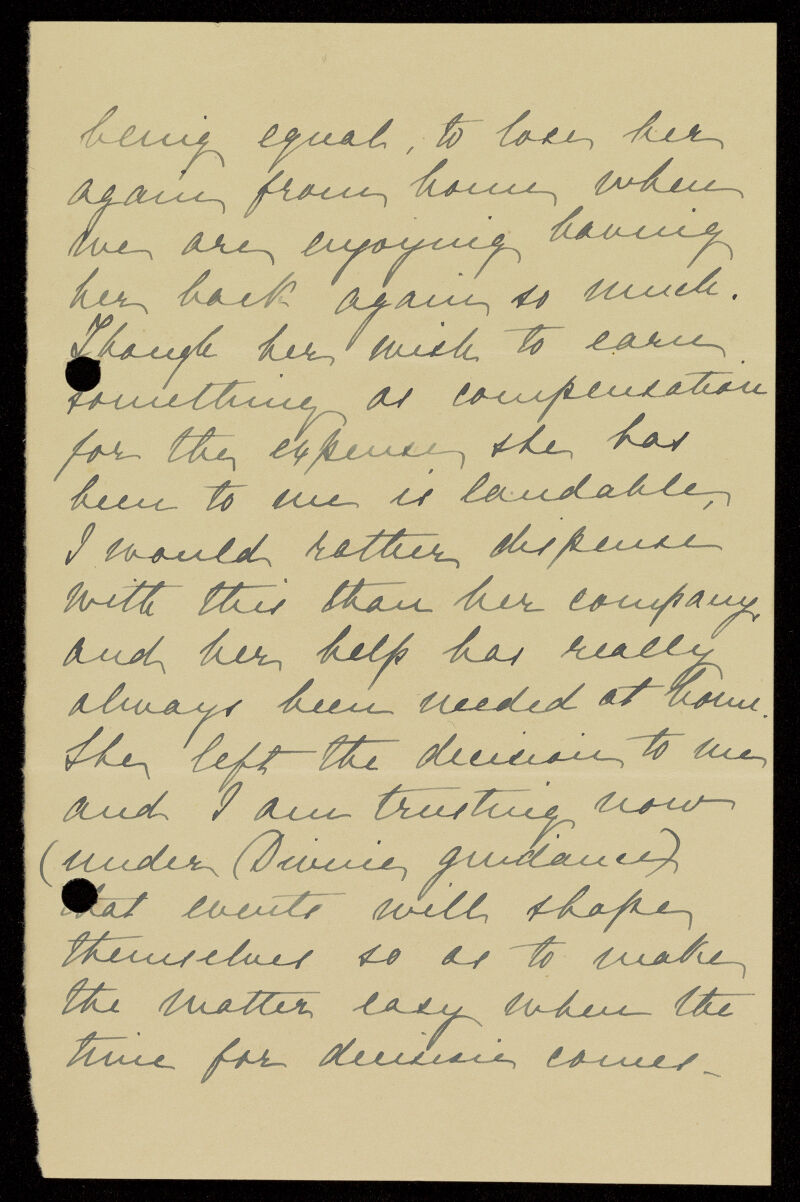 being equal, to lose her
again from home when
we are enjoying having
her back again so much.
Though her wish to earn
something as compensation
for the expense she has
been to me is laudable,
I would rather dispense
with this than her company,
and her help has really
always been needed at home.
She left the decision to me
and I am trusting now
(under Divine guidance)
that events will shape
themselves so as to make
the matter easy when the
time for decision comes -